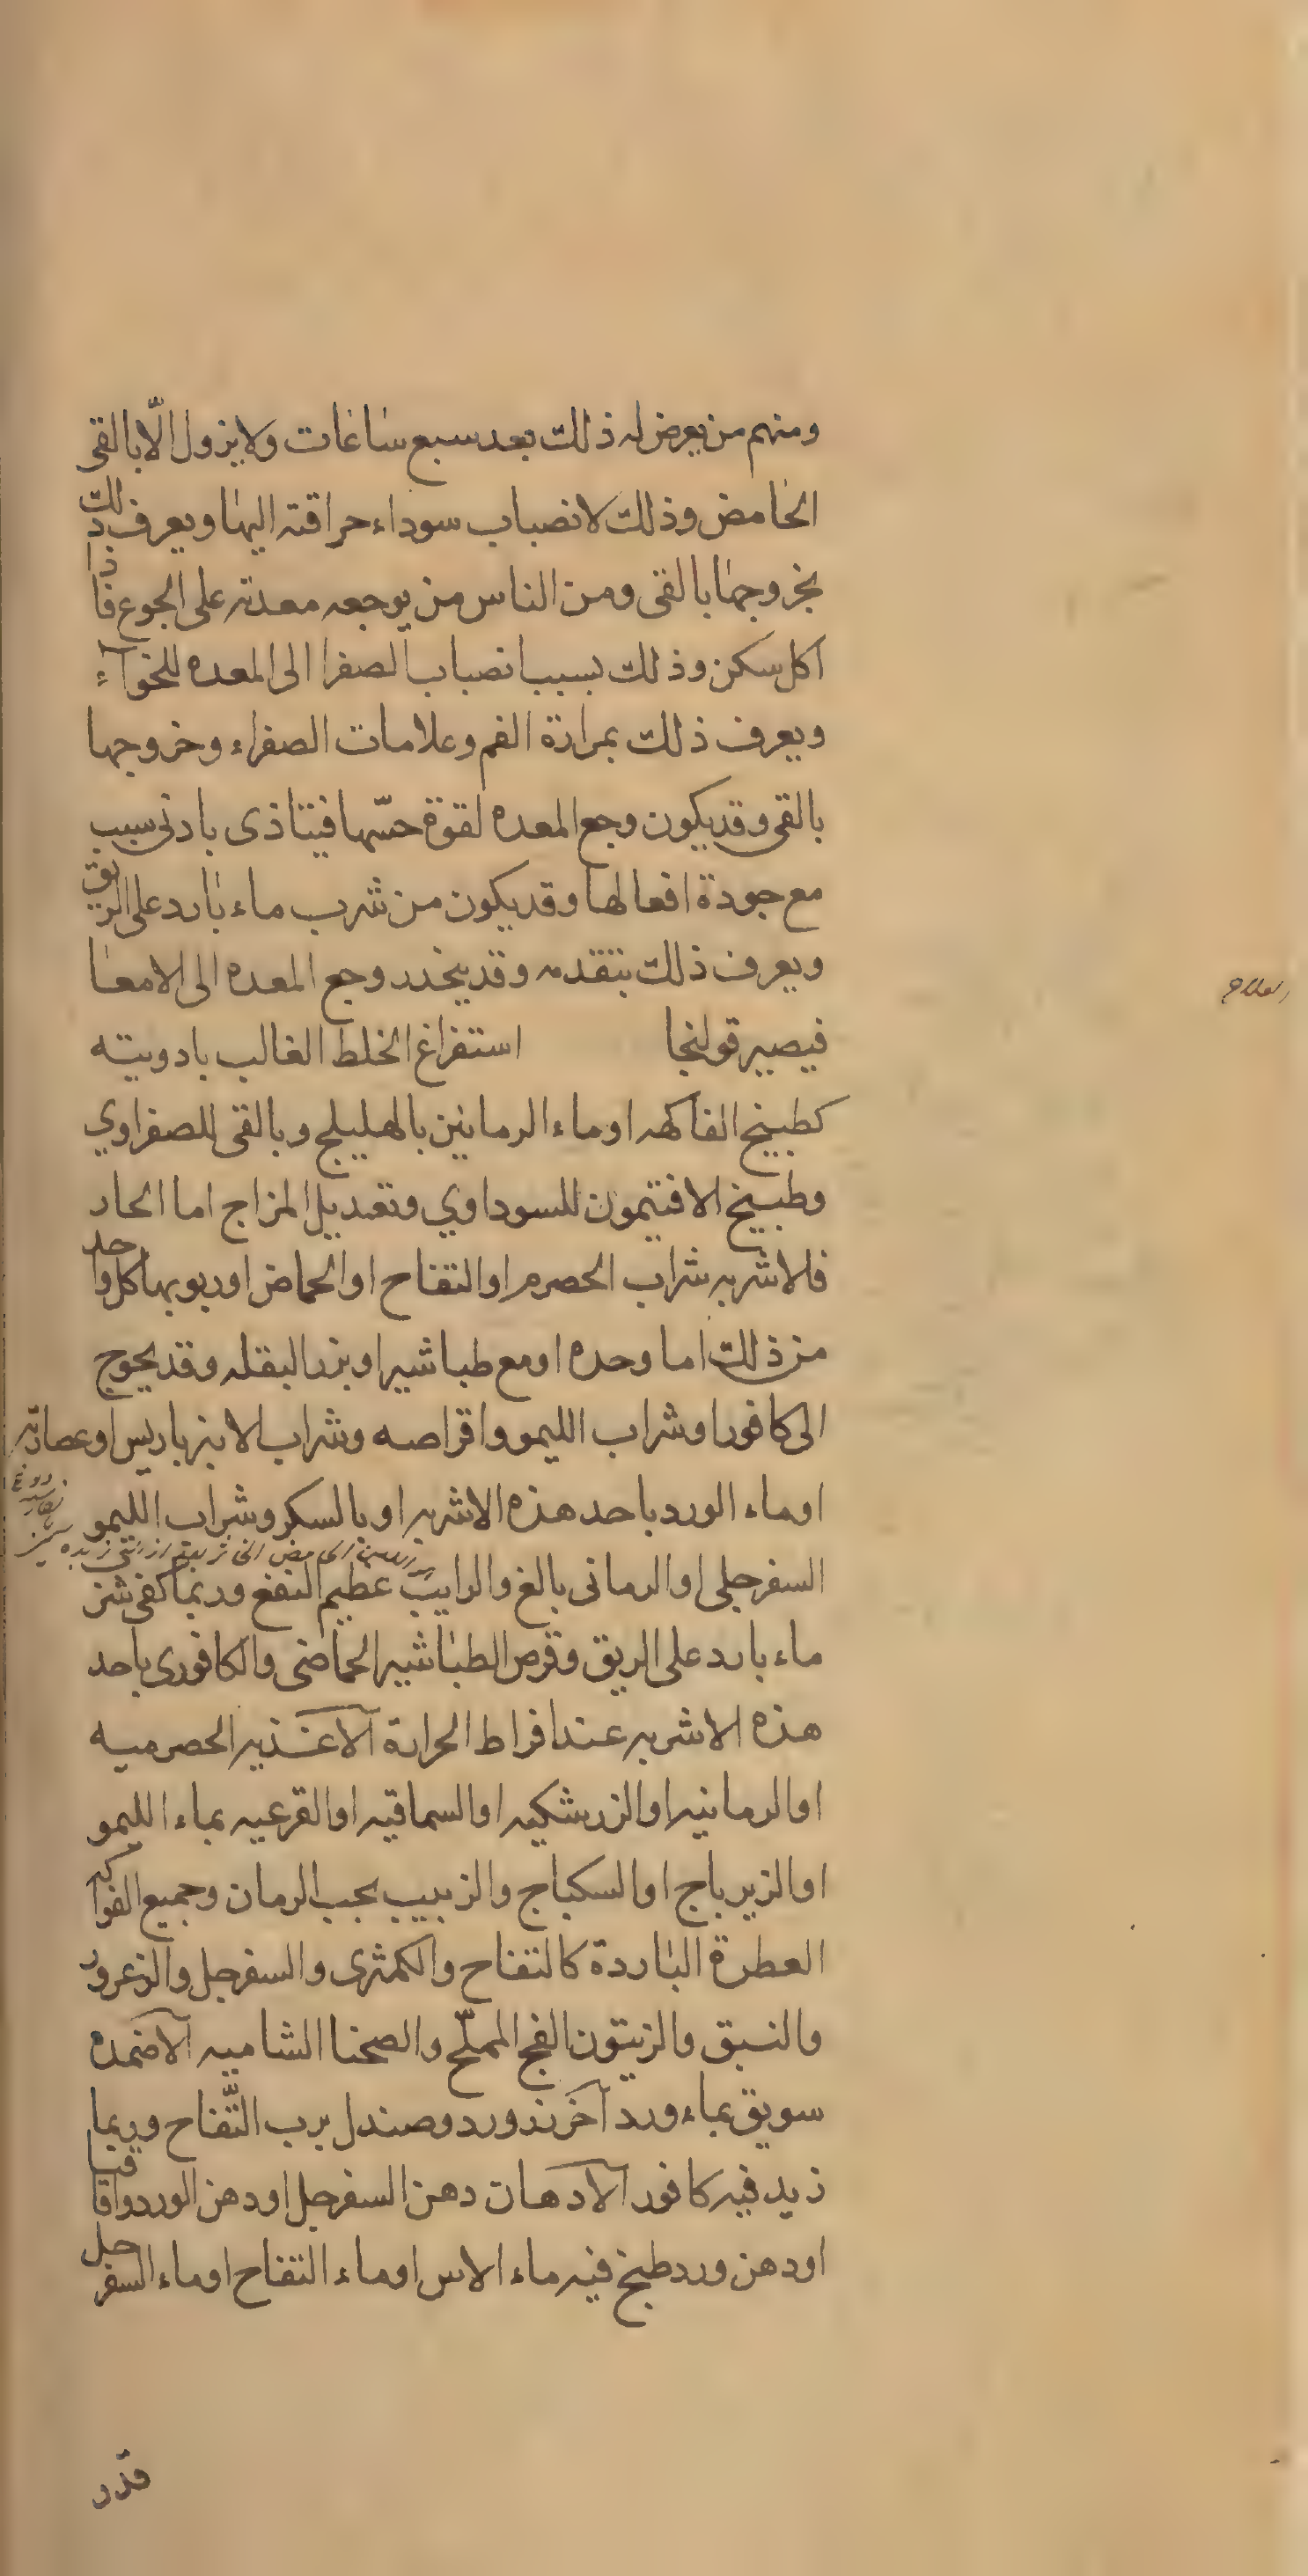 ومنهم من يعرض له ذلك بعد سبع ساعات ولا يزول الّا بالقى
الحامض وذلك لانصباب سوداء حراقته اليها ويعرف ذلك
بخروجها بالقى ومن الناس من يوجعه معدته على الجوع فاذا
اكل سكن وذلك بسبب انصباب الصفرا الى المعده للخوآء
ويعرف ذلك بمرارة الفم وعلامات الصفراء وخروجها
بالقى وقد يكون وجع المعده لقوة حسّها فيتاذى بادنى سبب
مع جودة افعالها وقد يكون من شرب ماء بارد على الريق
ويعرف ذلك بتقدمه وقد ينحدر وجع المعده الى الامعا
العلاج
فيصير قولنجا استفراغ الخلط الغالب بادويته
كطبيخ الفاكهه او ماء الرمانين بالهليلج وبالقى للصفراوي
وطبيخ الافتيمون للسوداوي وتعديل المزاج اما الحار
فالاشربه شراب الحصرم او التفاح او الحماض او ربوبها كل واحد
من ذلك اما وحده او مع طباشير او بزر البقله وقد يحوج
الى كافور او شراب الليمو واقراصه وشراب الانبرباريس او عصارته
او ماء الورد باحد هذه الاشربه او بالسكر وشراب الليمو
السفرجلى او الرمانى بالغ والرايب عظيم النفع وربما كفى شرب
ماء بارد على الريق وقرص الطباشير الحماضى والكافورى باحد
هذه الاشربه عند افراط الحرارة الاغذيه الحصرميه
او الرمانيه او الزرشكيه او السماقيه او القرعيه بماء الليمو
او الزيرباج او السكباج والزبيب بحب الرمان وجميع الفواكه
العطرة الباردة كالتفاح والكمثرى والسفرجل والزعرور
والنبق والزيتون الفج المملّح والصحنا الشاميه الاضمده
سويق بماء ورد آخر زرورد وصندل برب التّفاح وربما
زيد فيه كافور الادهان دهن السفرجل او دهن الورد واقاقيا
او دهن ورد طبخ فيه ماء الاس او ماء التفاح او ماء السفرجل